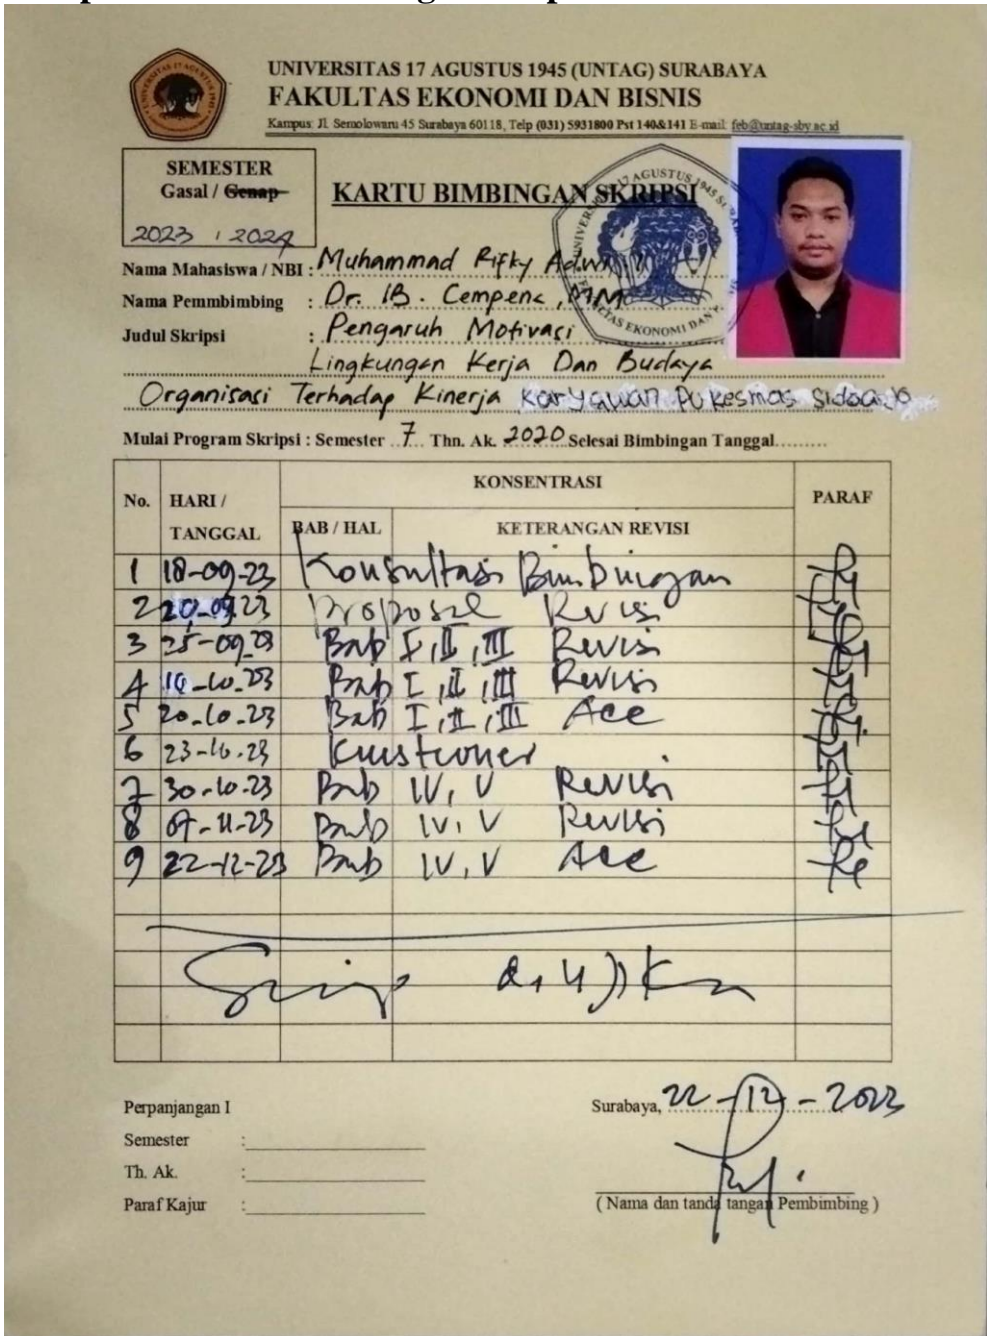 UNIVERSITAS 17 AGUSTUS 1945 (UNTAG) SURABAYA
FAKULTAS EKONOMI DAN BISNIS
Kampus: Jl. Semolowaru 45 Surabaya 60118, Telp (031) 5931800 Pst 140&141 E-mail: feb@untag-sby.ac.id
SEMESTER
Gasal / Genap
2023 / 2024
KARTU BIMBINGAN SKRIPSI
Nama Mahasiswa / NBI : Muhammad Rifky
Nama Pemmbimbing : Dr. IB. Cempena, MM
Judul Skripsi : Pengaruh Motivasi
Lingkungan Kerja Dan Budaya
Organisasi Terhadap Kinerja Karyawan Pukesmas Sidoarjo
Mulai Program Skripsi : Semester 7 Thn. Ak. 2020 Selesai Bimbingan Tanggal.........
No. HARI / TANGGAL KONSENTRASI PARAF
BAB / HAL KETERANGAN REVISI
1 18-09-23 Konsultasi Bimbingan
2 20-09-23 Proposal Revisi
3 25-09-23 Bab I, II, III Revisi
4 10-23 Bab I, II, III Revisi
5 20-10-23 Bab I, II, III Acc
6 23-10-23 Kuistioner
7 30-10-23 Bab IV, V Revisi
8 07-11-23 Bab IV, V Revisi
9 22-12-23 Bab IV, V Acc
Siap diujikan
Perpanjangan I
Semester :
Th. Ak. :
Paraf Kajur :
Surabaya, 22-12-2023
( Nama dan tanda tangan Pembimbing )